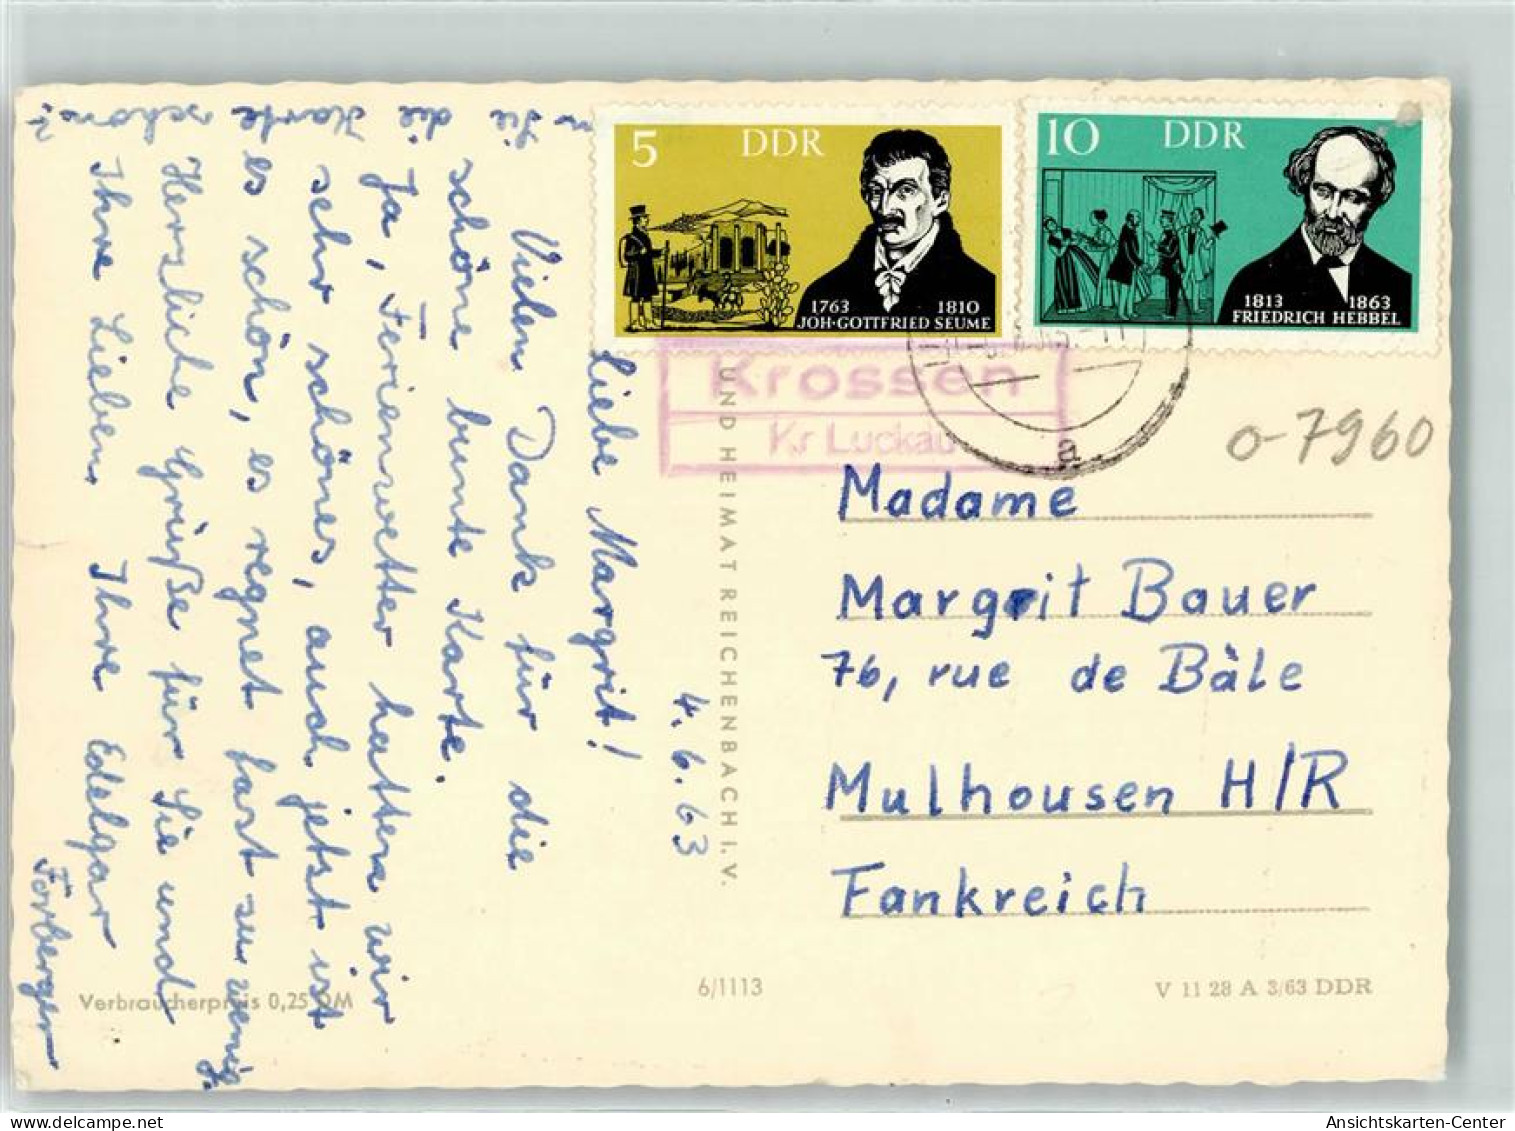 5 DDR
1763 1810
JOH·GOTTFRIED SEUME
10 DDR
1813 1863
FRIEDRICH HEBBEL
Krossen
Kr Luckau
o-7960
4.6.63
Liebe Margrit!
Vielen Dank für die
schöne bunte Karte.
Ja, Ferienwetter hatten wir
sehr schönes, auch jetzt ist
es schön, es regnet fast zu wenig.
Herzliche Grüße für Sie und
Ihre Lieben. Ihre Edelgar
Forberger
die
die
Karte
schön
UND HEIMAT REICHENBACH I. V.
Madame
Margrit Bauer
76, rue de Bâle
Mulhousen H/R
Fankreich
Verbraucherpreis 0,25 DM
6/1113
V 11 28 A 3/63 DDR
Ansichtskarten-Center